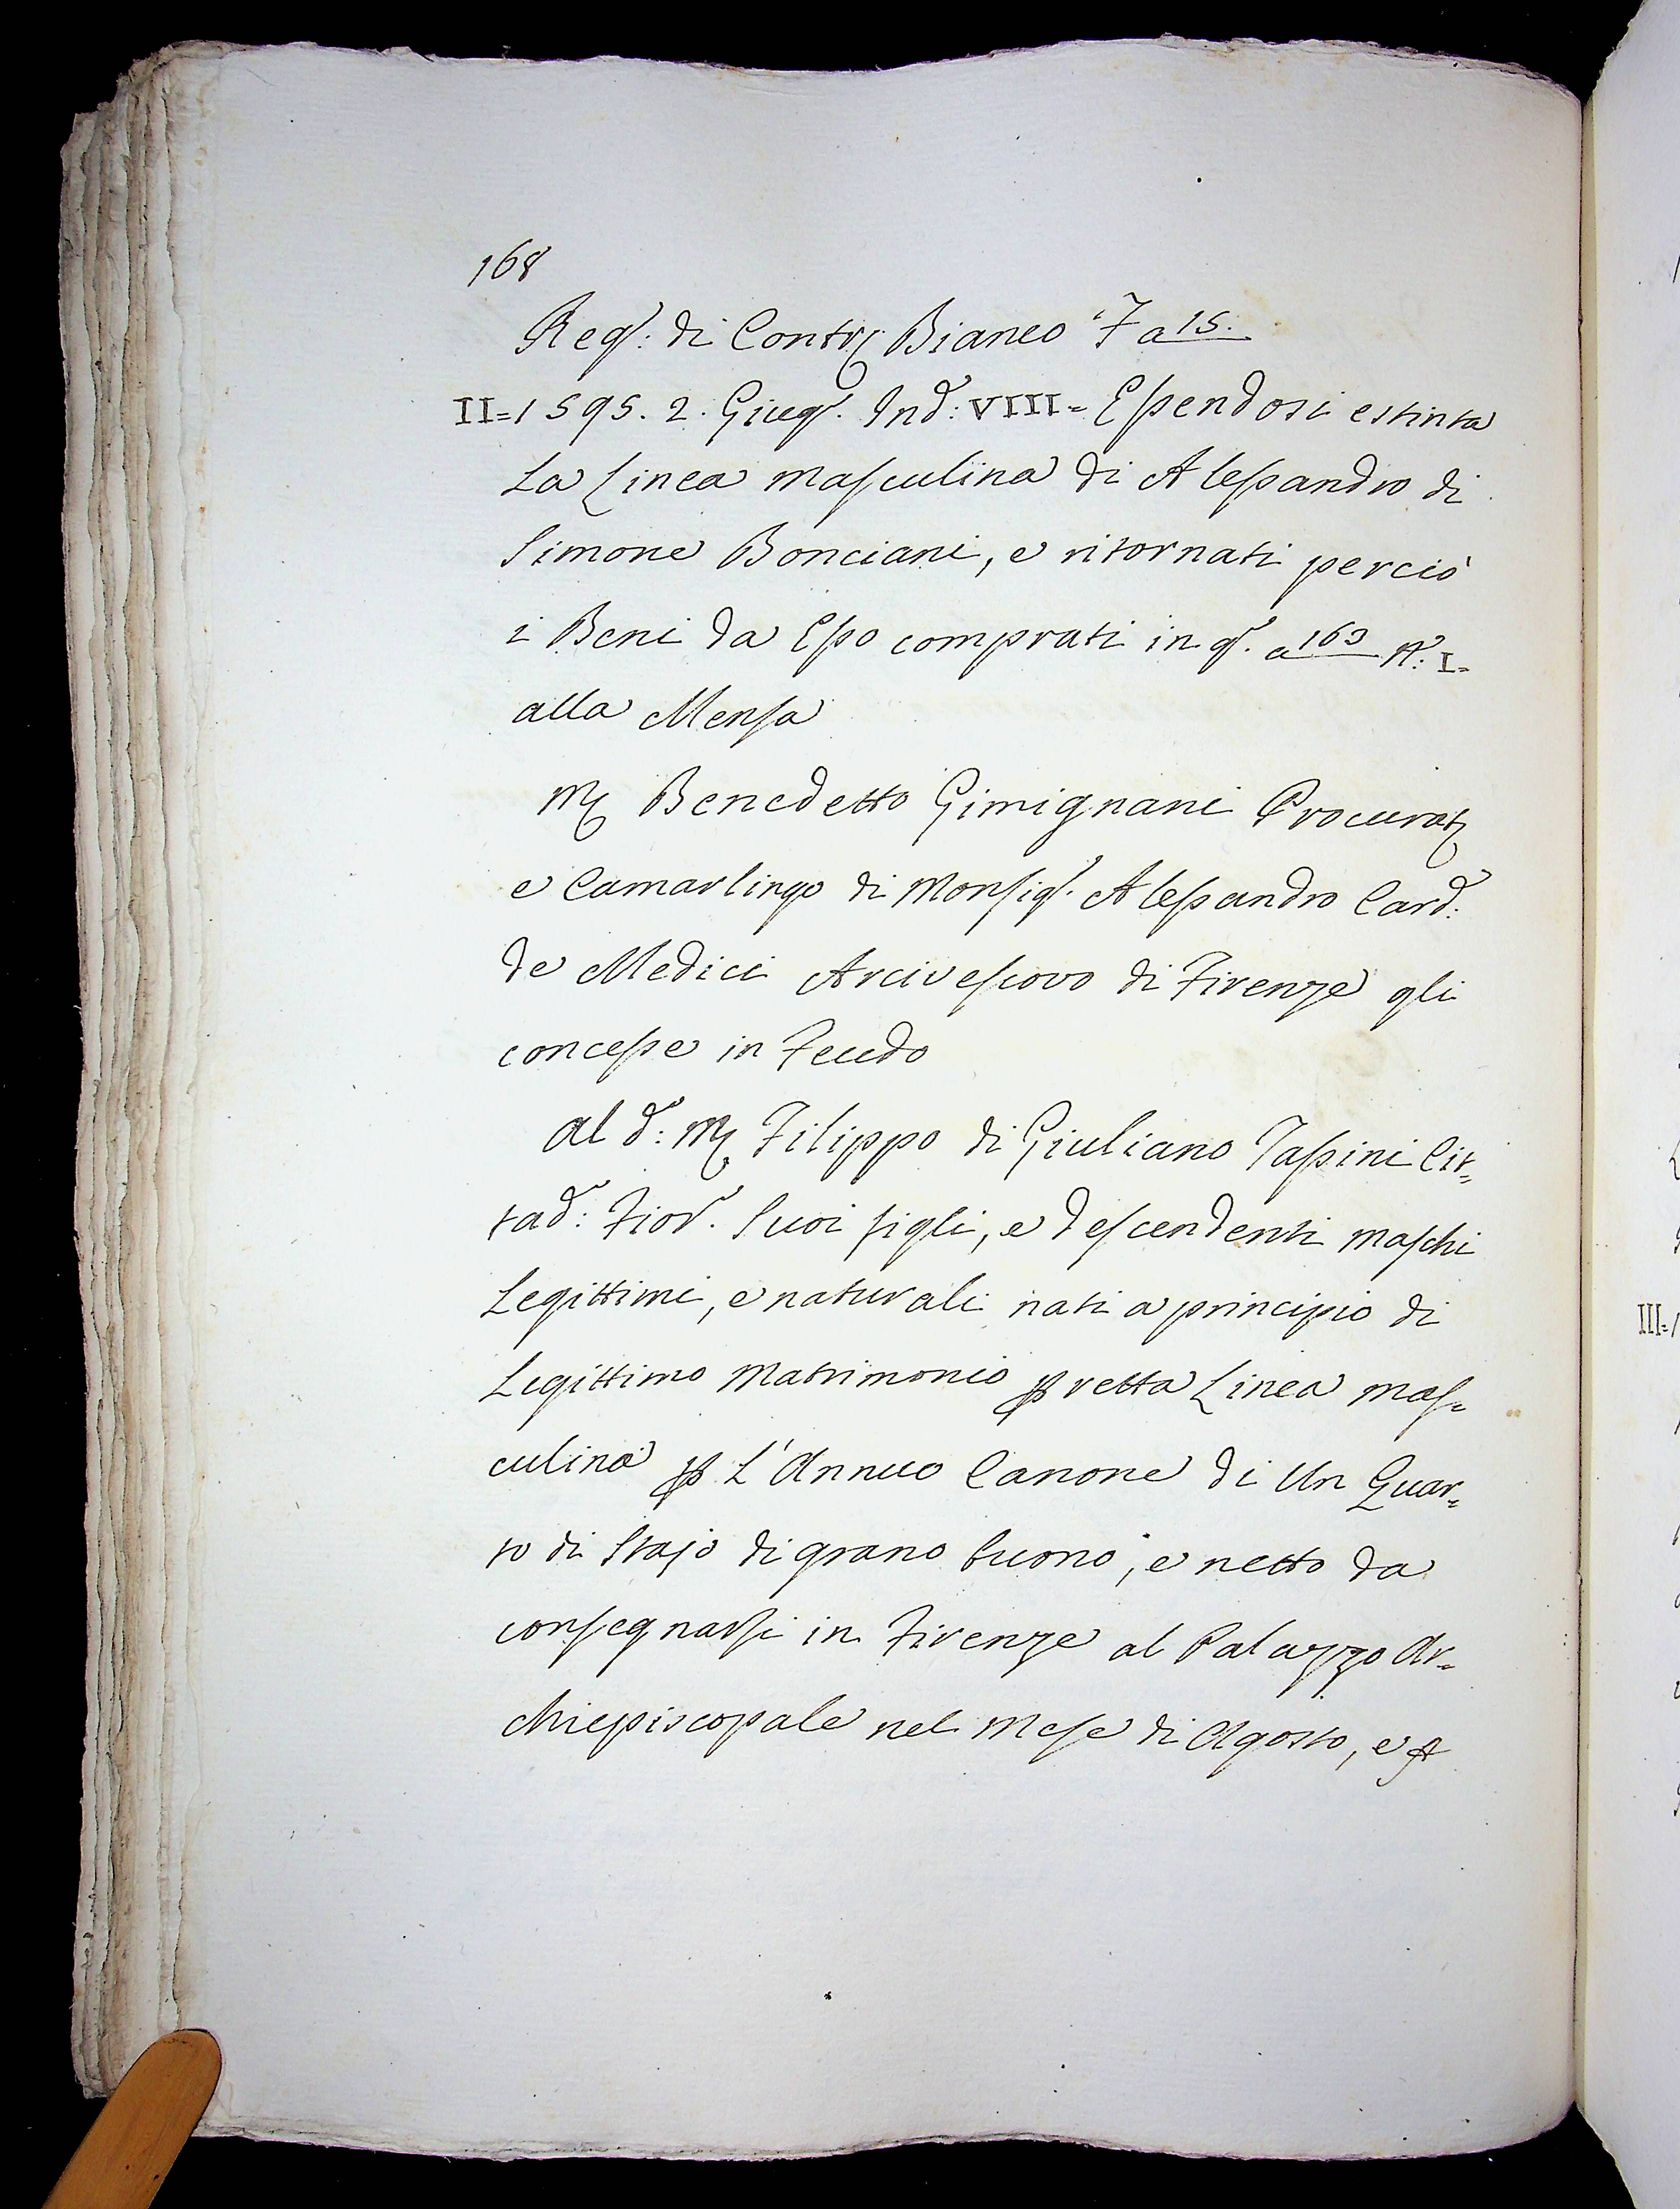 168
Reg.: di Contr. Bianco 7 a 15.
II=1595. 2. Giug. Ind: VIII= Essendosi estinta
La Linea masculina di Alessandro di
Simone Bonciani, e ritornati perciò
i Beni da Esso comprati in q. a 163 N: I=
alla Mensa
M. Benedetto Gimignani Procurat.
e Camarlingo di Monsig. Alessandro Card:
de Medici Arcivescovo di Firenze gli
concesse in Feudo
al d: M. Filippo di Giuliano Tassini Cit=
tad: Fior. Suoi figli, e descendenti maschi
Legittimi, e naturali nati a principio di
Legittimo Matrimonio ꝑ retta Linea mas=
culina ꝑ L'Annuo Canone di Un Quar=
to di Stajo di grano buono, e netto da
consegnarsi in Firenze al Palazzo Ar=
chiepiscopale nel Mese di Agosto, e
III=1